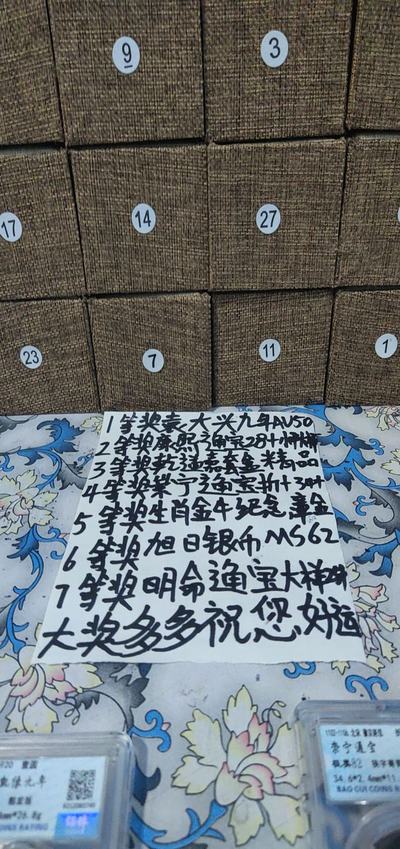 9
3
17
14
27
23
7
11
1
1等奖袁大头九年AU50
2等奖康熙通宝28+
3等奖乾隆嘉套金精品
4等奖崇宁通宝折十3枚
5等奖生肖金牛纪念章金
6等奖旭日银币MS62
7等奖明命通宝大样
大奖多多祝您好运
1102-1106 北宋
崇宁通宝
极美82
34.6*2.4mm*11.
BAO CUI COINS RA
壹圆
元年
*26.8g
COINS RATING